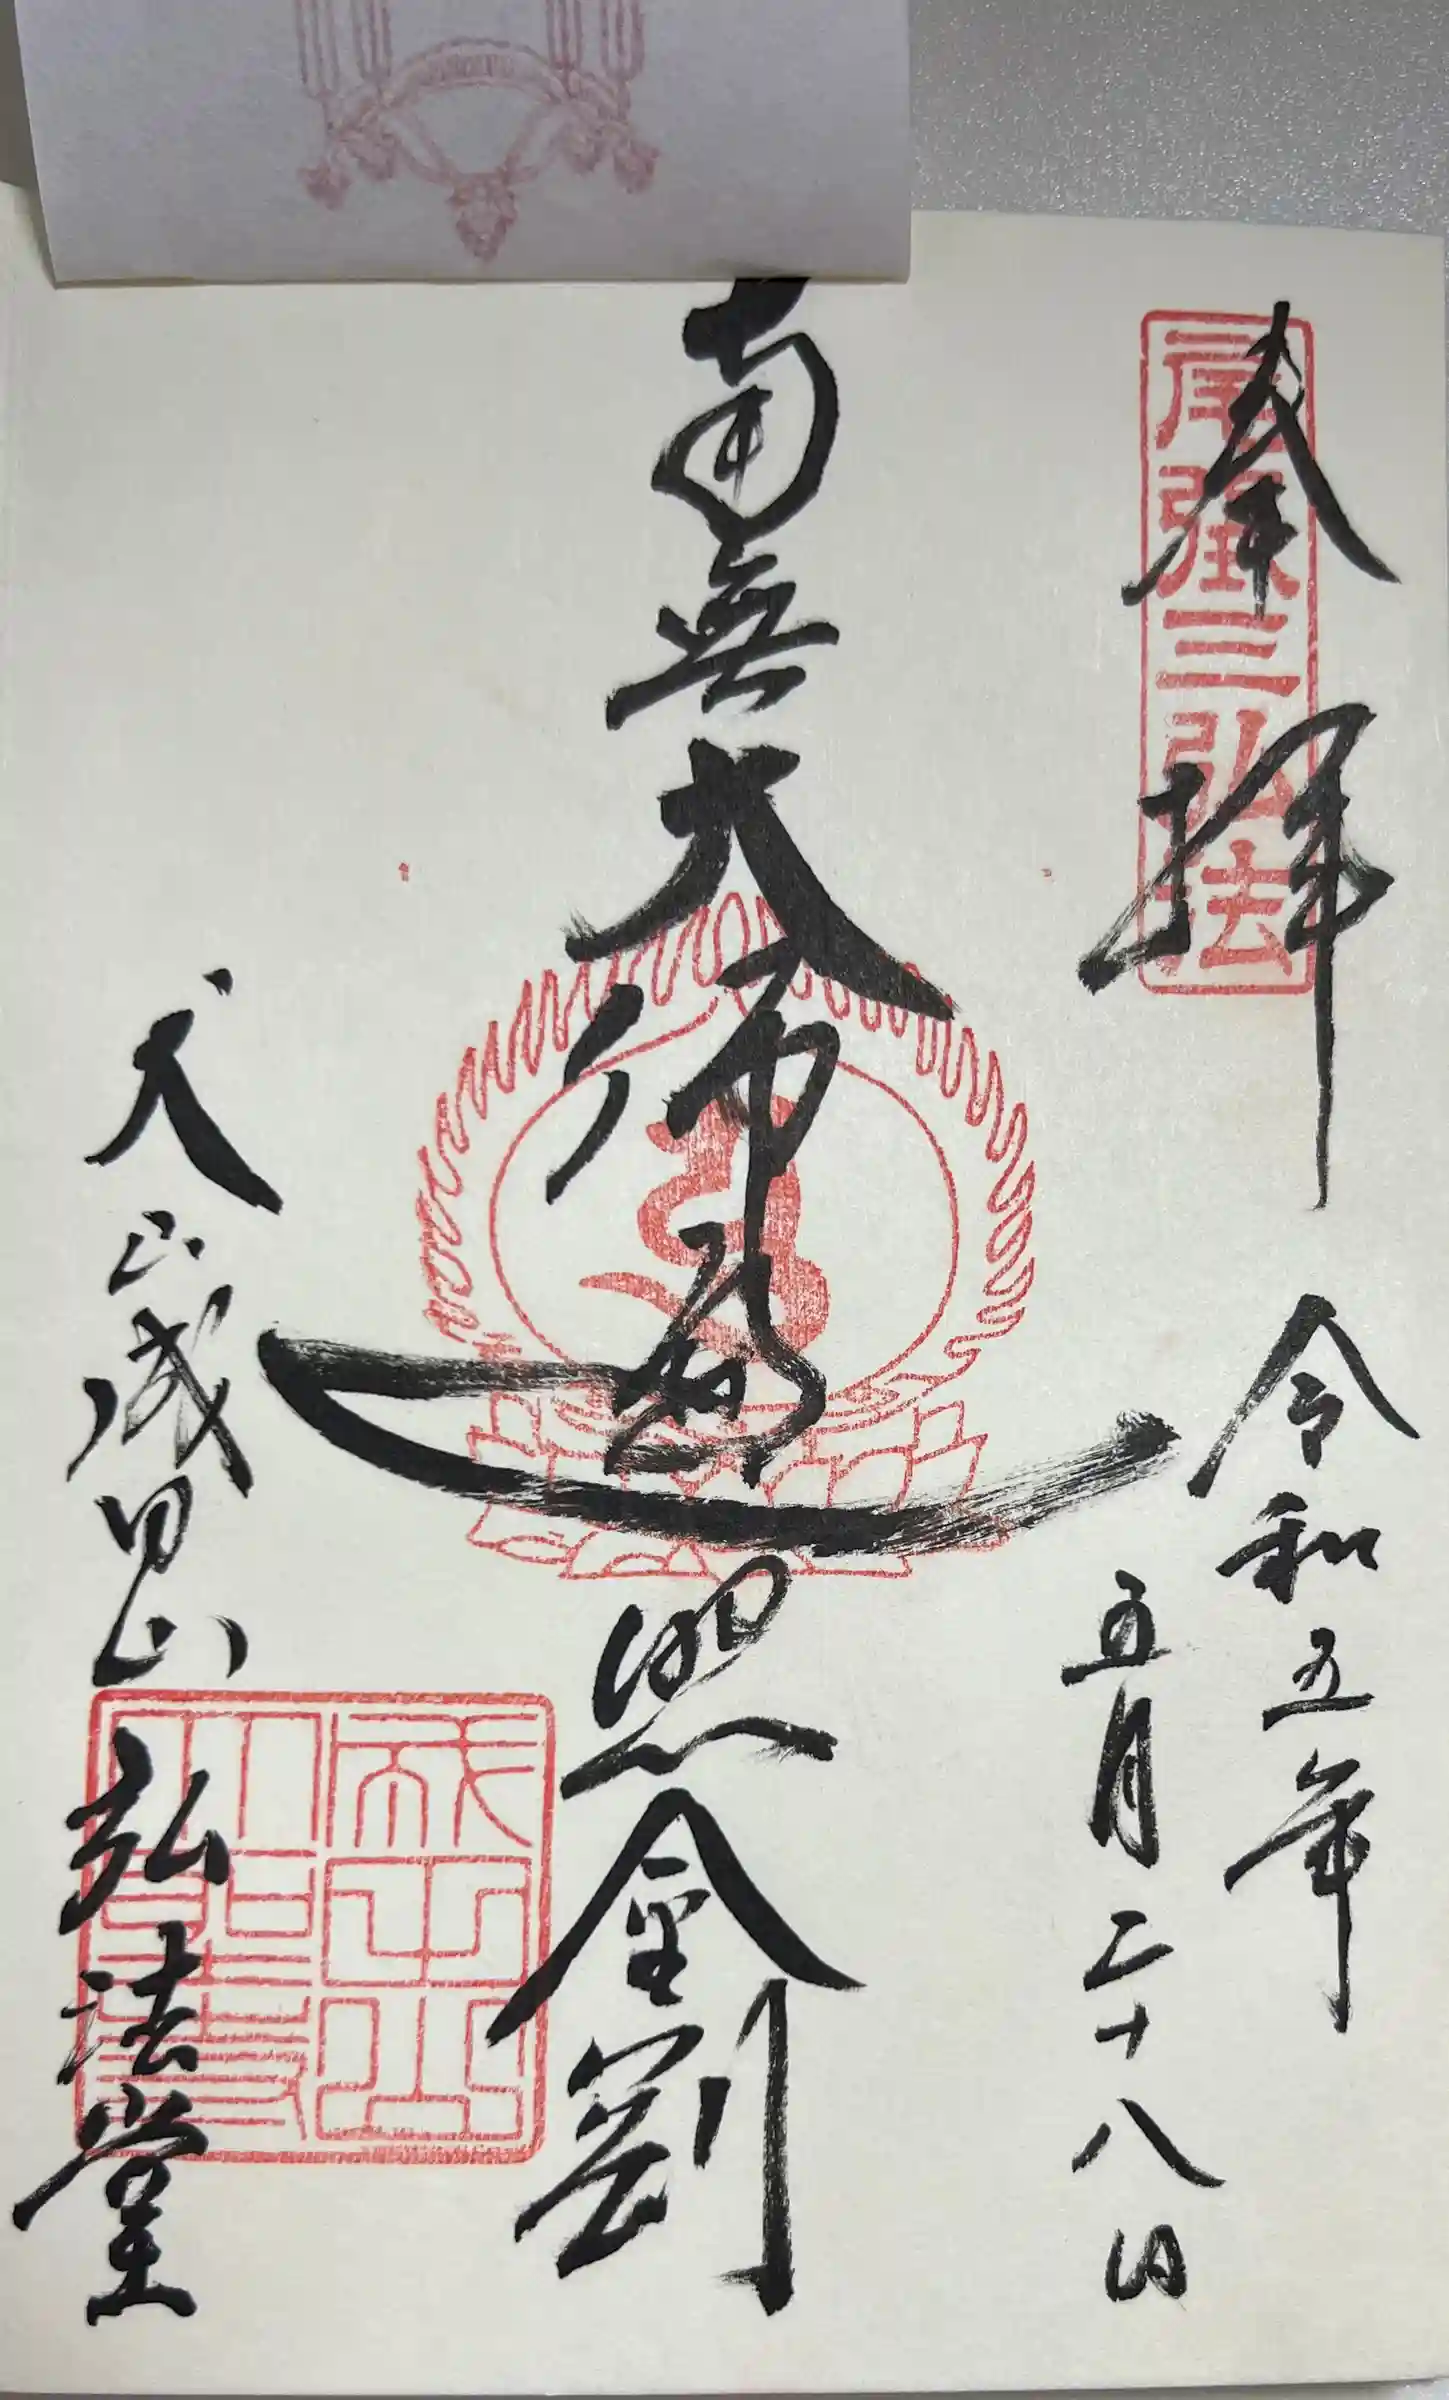 奉拝
尾張三弘法
令和五年
五月二十八日
南無大師遍照金剛
犬山成田山
弘法堂